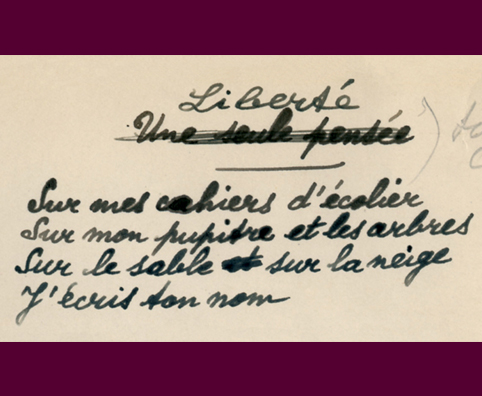 Liberté
Une seule pensée
Sur mes cahiers d'écolier
Sur mon pupitre et les arbres
Sur le sable et sur la neige
J'écris ton nom